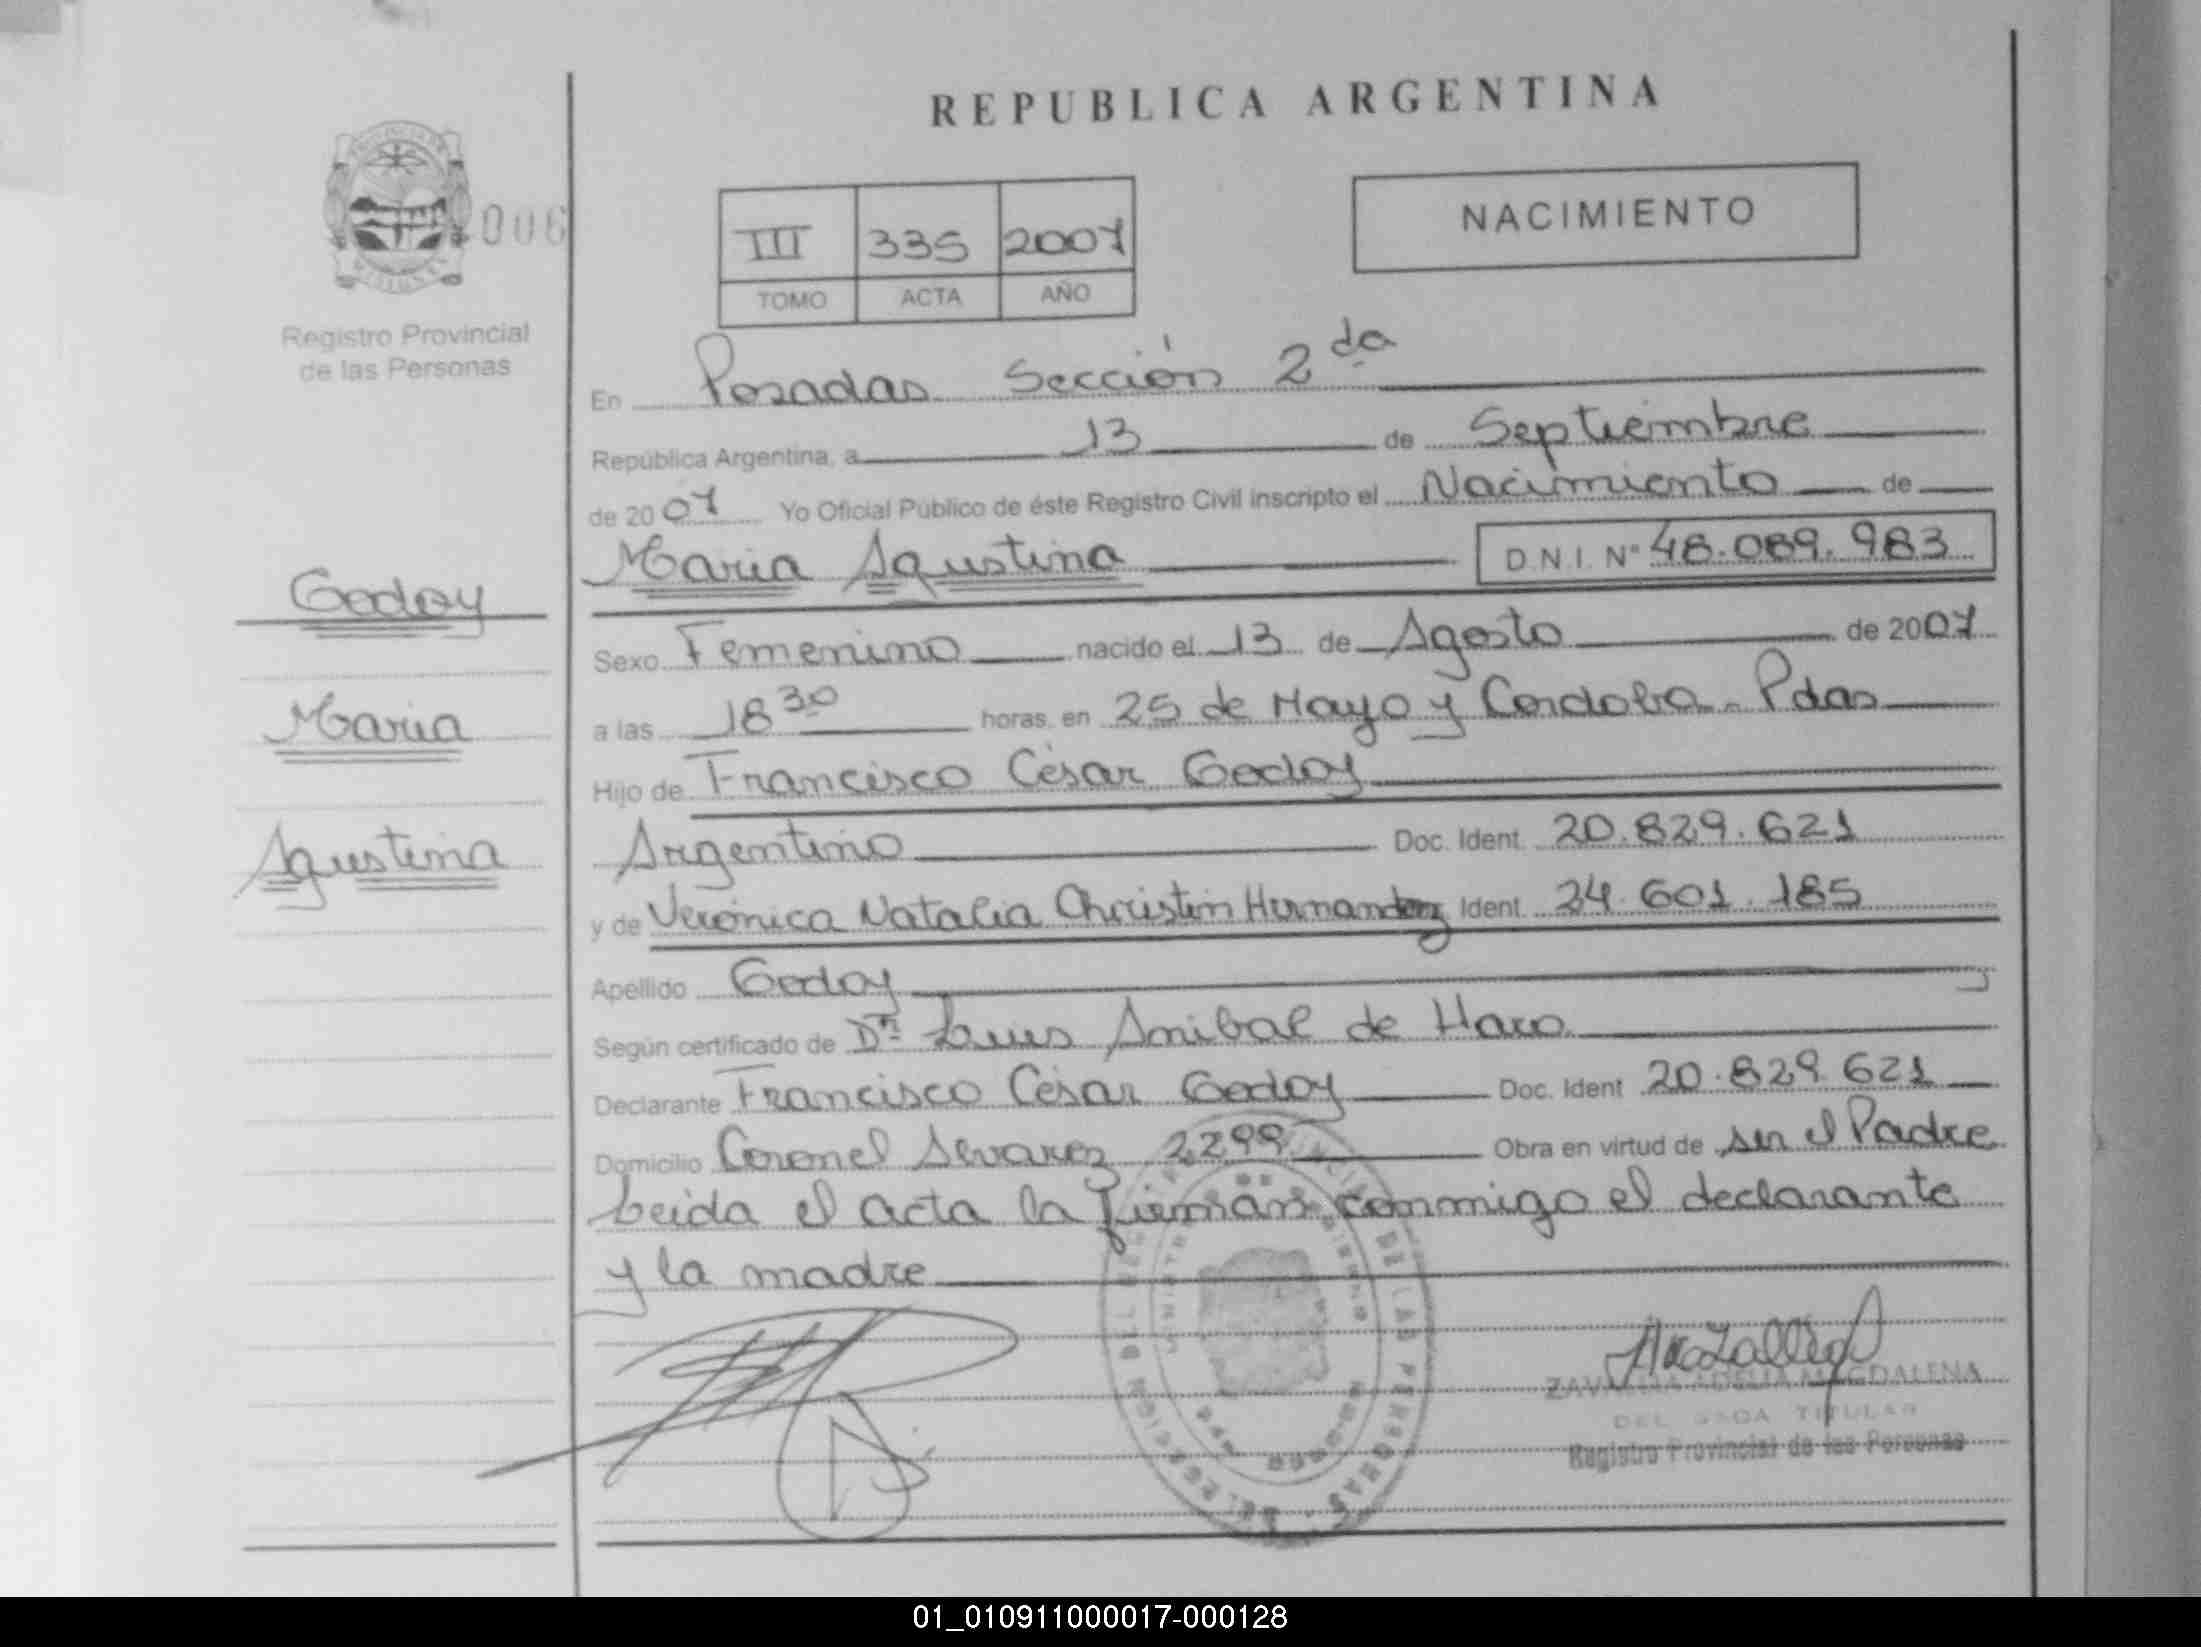 REPUBLICA ARGENTINA
NACIMIENTO
III 335 2007
TOMO ACTA AÑO
006
Registro Provincial
de las Personas
En Posadas Sección 2da
República Argentina, a 13 de Septiembre
de 2007 Yo Oficial Público de éste Registro Civil inscripto el Nacimiento de
Maria Agustina D.N.I. Nº 48.089.983
Godoy
Maria
Agustina
Sexo Femenino nacido el 13 de Agosto de 2007
a las 18 30 horas, en 25 de Mayo y Cordoba - Pdas
Hijo de Francisco César Godoy
Argentino Doc. Ident. 20.829.621
y de Verónica Natalia Christin Hernandez Ident. 24.601.185
Apellido Godoy
Según certificado de Dr. Luis Anibal de Haro
Declarante Francisco César Godoy Doc. Ident 20.829.621
Domicilio Coronel Alvarez 2299 Obra en virtud de ser el Padre
Leida el acta la firman conmigo el declarante
y la madre
MAGDALENA
TITULAR
Registro Provincial de las Personas
01_010911000017-000128